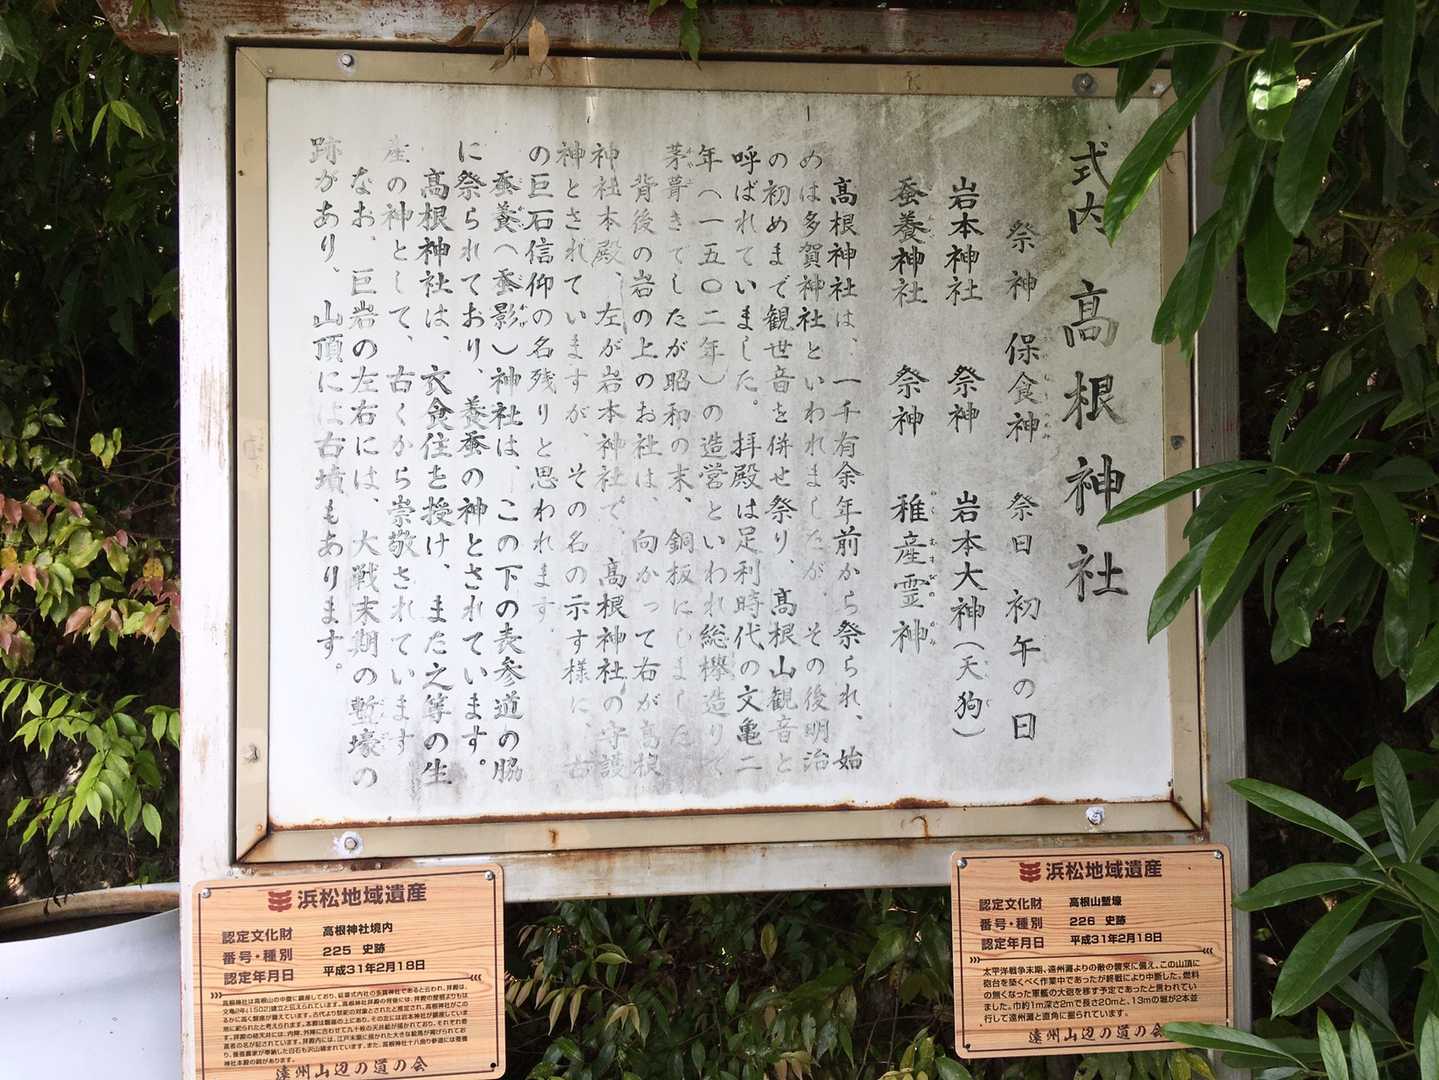 式内 高根神社
祭神 保食神 祭日 初午の日
岩本神社 祭神 岩本大神(天狗)
蚕養神社 祭神 稚産霊神
高根神社は、一千有余年前から祭られ、始
めは多賀神社といわれましたが、その後明治
の初めまで観世音を併せ祭り、高根山観音と
呼ばれていました。拝殿は足利時代の文亀二
年(一五〇二年)の造営といわれ総欅造りで
茅葺きでしたが昭和の末、銅板にしました
背後の岩の上のお社は、向かって右が高根
神社本殿、左が岩本神社で、高根神社の守護
神とされていますが、その名の示す様に、古
の巨石信仰の名残りと思われます。
蚕養(蚕影)神社は、この下の表参道の脇
に祭られており、養蚕の神とされています。
高根神社は、衣食住を授け、また之等の生
産の神として、古くから崇敬されています
なお、巨岩の左右には、大戦末期の塹壕の
跡があり、山頂には古墳もあります。
浜松地域遺産
認定文化財 高根神社境内
番号・種別 225 史跡
認定年月日 平成31年2月18日
遠州山辺の道の会
浜松地域遺産
認定文化財 高根山塹壕
番号・種別 226 史跡
認定年月日 平成31年2月18日
太平洋戦争末期、遠州灘よりの敵の襲来に備え、この山頂に
砲台を築くべく作業中であったが終戦により中断した。燃料
の無くなった軍艦の大砲を移す予定であったと言われてい
ました。巾約1m深さ2mで長さ20mと、13mの堀が2本並
行して遠州灘と直角に掘られています。
遠州山辺の道の会